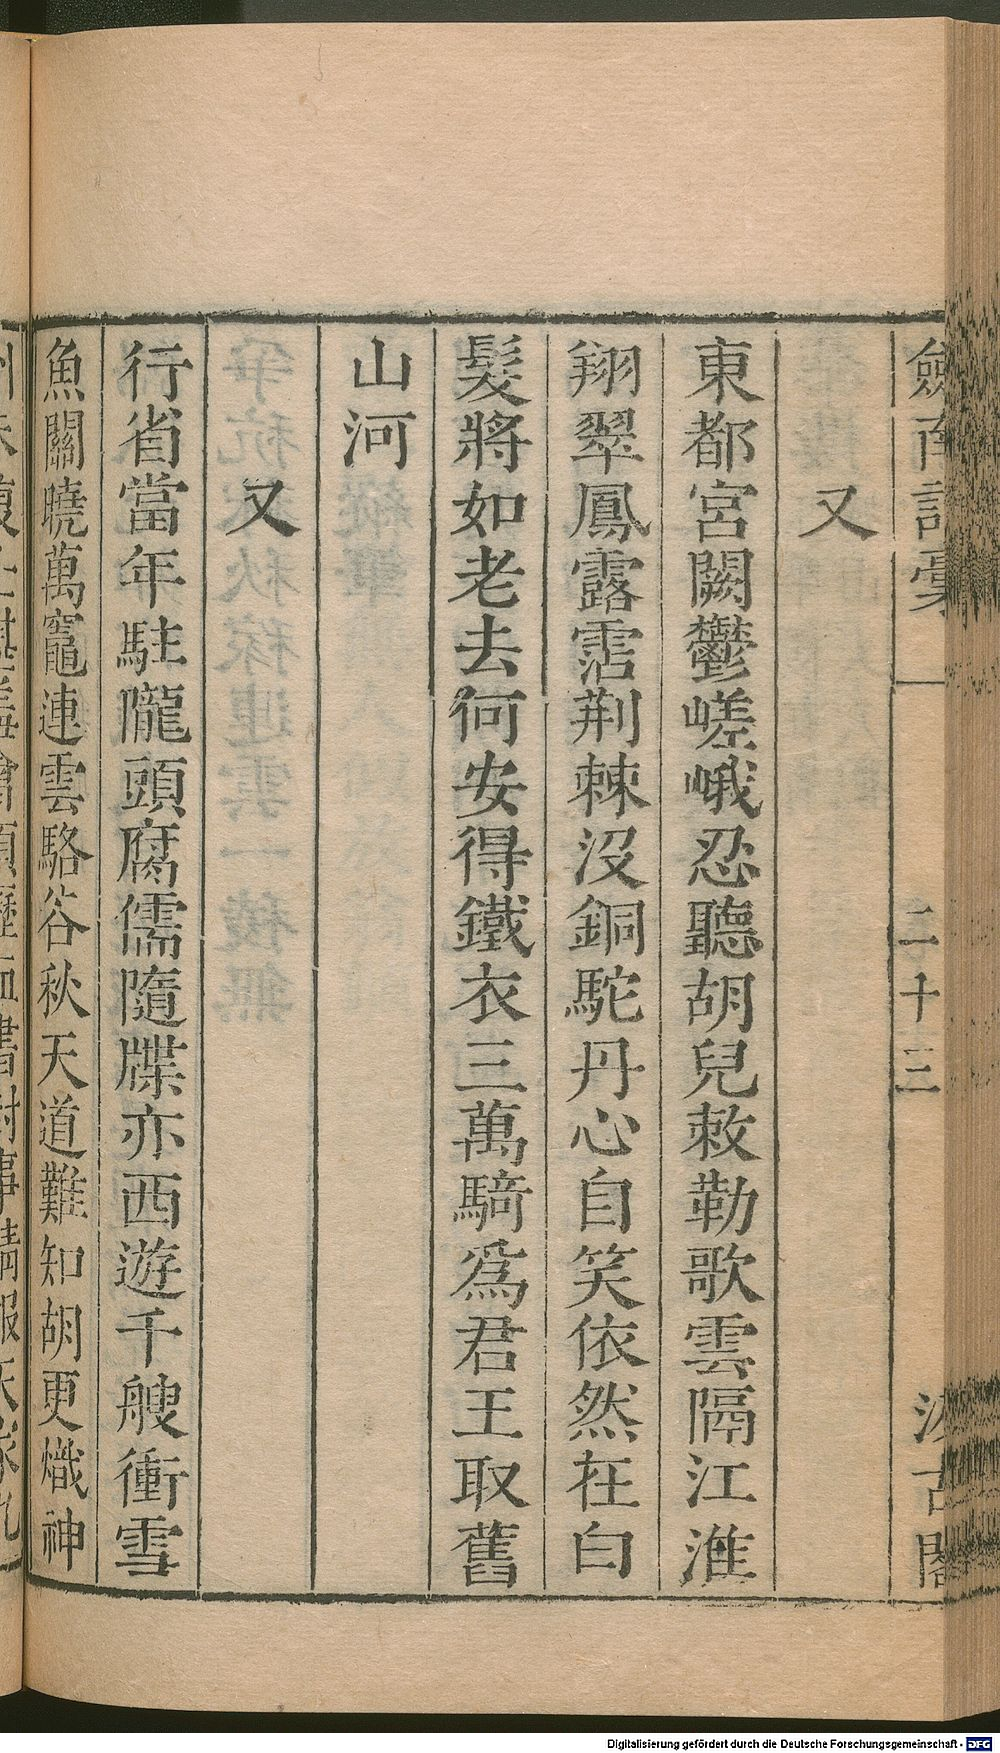 劒南詩稾
二十三
汲古閣
又
東都宮闕鬱嵯峨忍聽胡兒敕勒歌雲隔江淮
翔翠鳳露霑荆棘沒銅駝丹心自笑依然在白
髮將如老去何安得鐵衣三萬騎爲君王取舊
山河
又
行省當年駐隴頭腐儒隨牒亦西遊千艘衝雪
魚關曉萬竈連雲駱谷秋天道難知胡更熾神
Digitalisierung gefördert durch die Deutsche Forschungsgemeinschaft - DFG